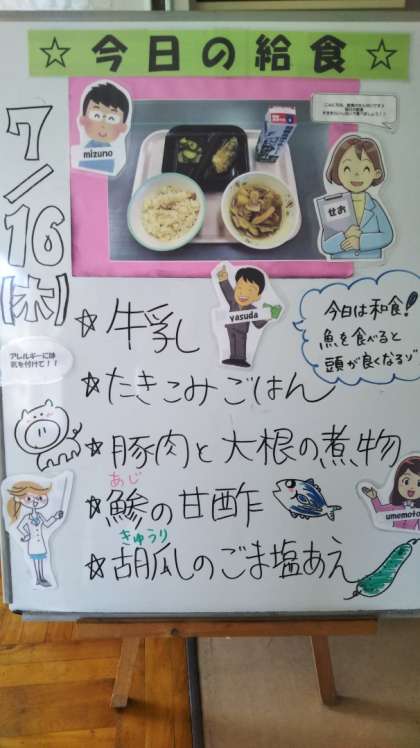 ☆今日の給食☆
7/16(木)
mizuno
せお
yasuda
今日は和食!
魚を食べると
頭が良くなるゾ
アレルギーには
気を付けて!!
☆牛乳
☆たきこみごはん
☆豚肉と大根の煮物
あじ
☆鯵の甘酢
きゅうり
☆胡瓜のごま塩あえ
umemoto